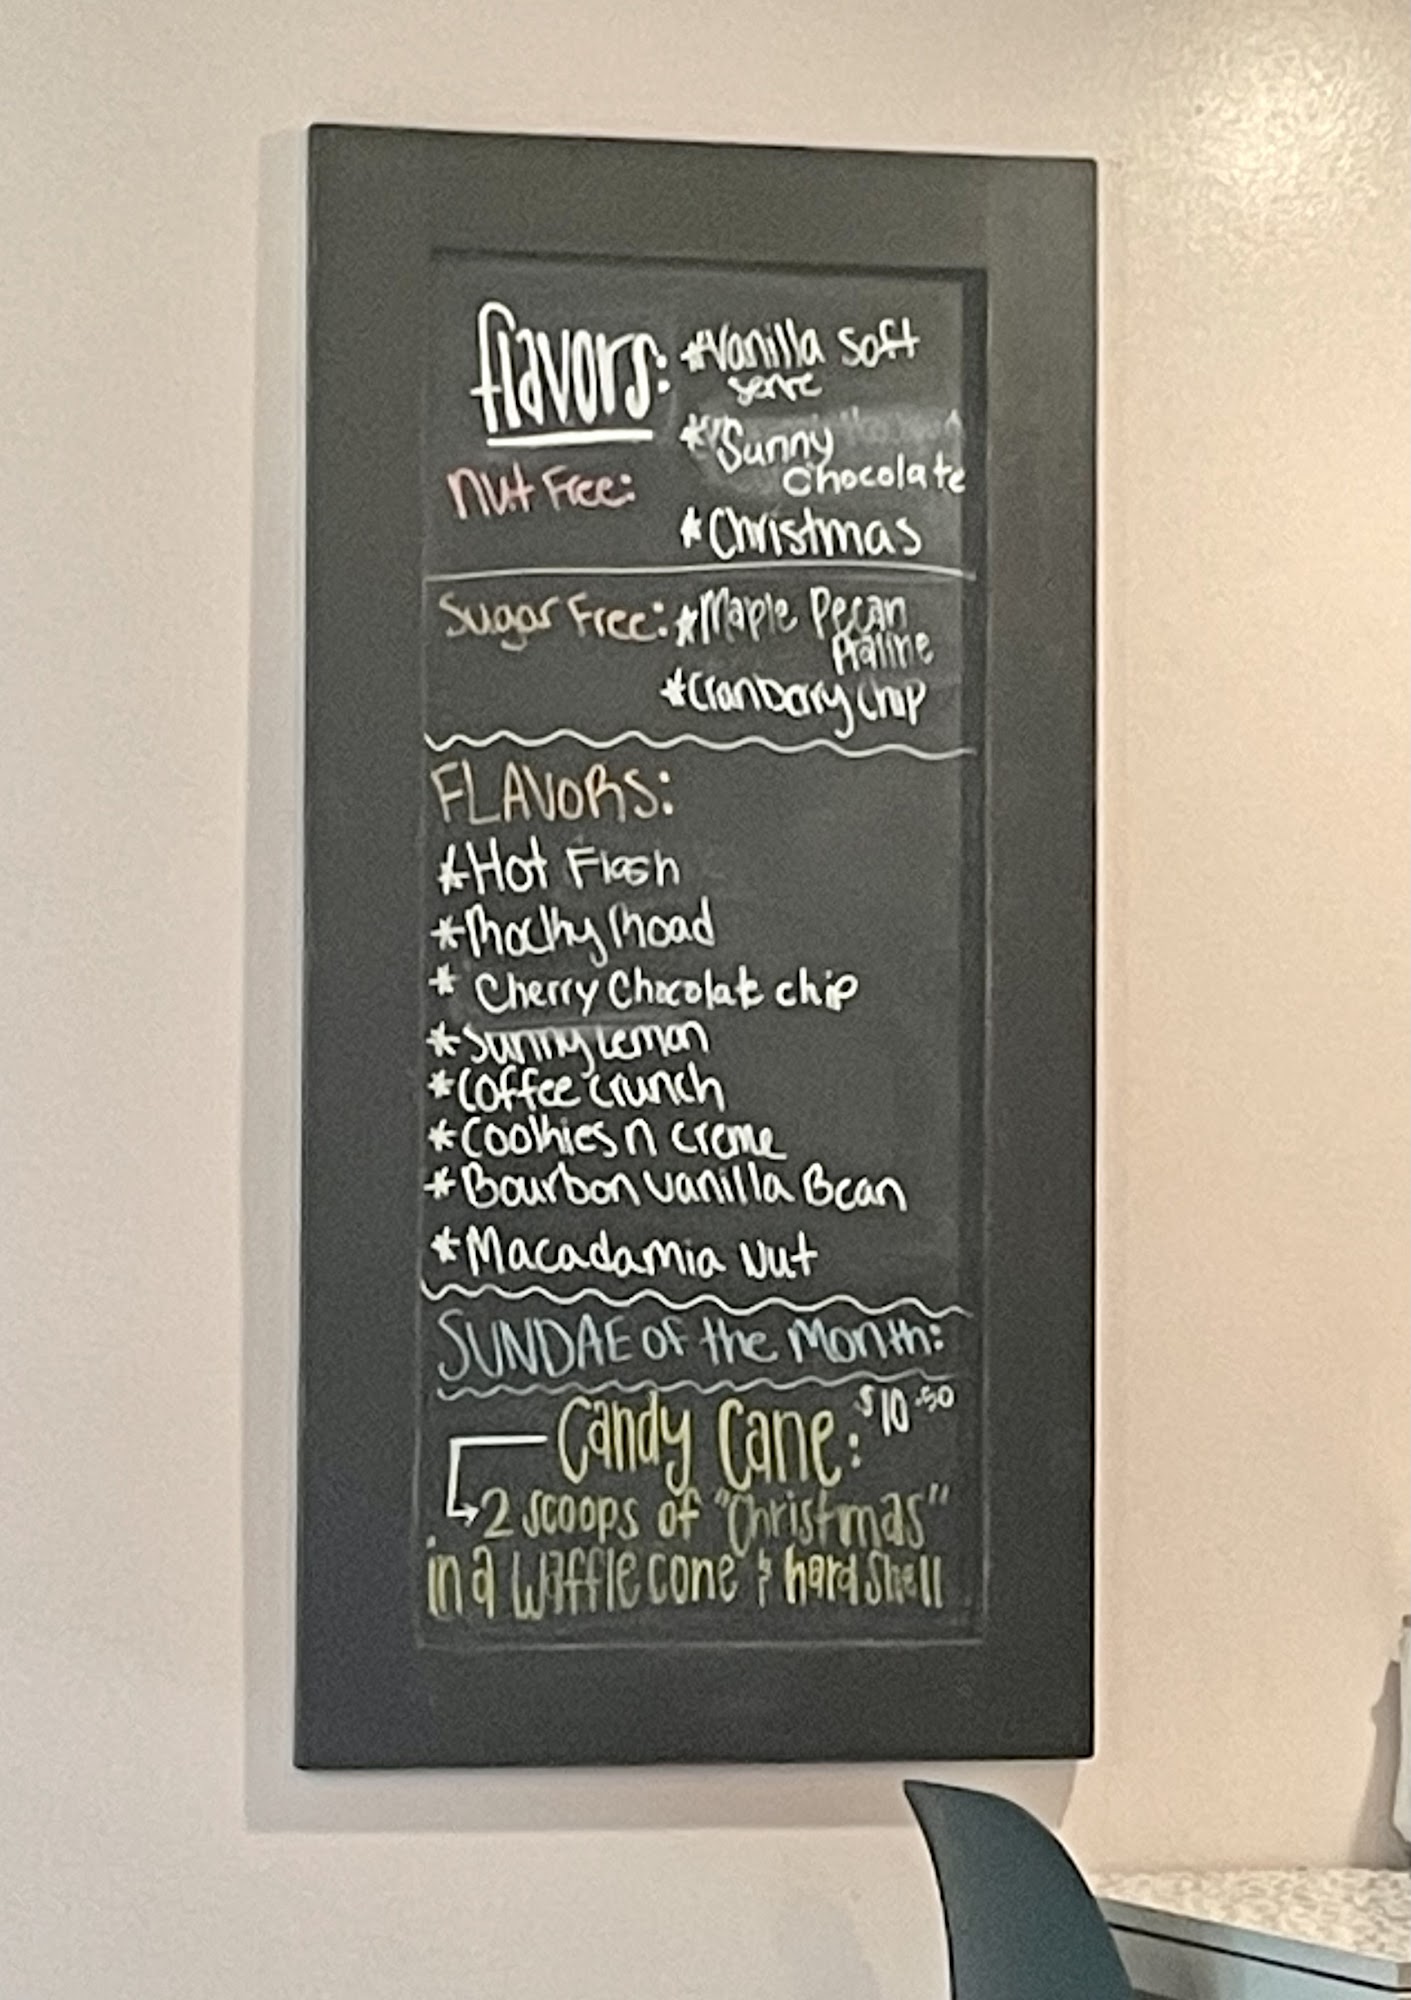 flavors: *Vanilla Soft
serve
*Sunny
Chocolate
Nut Free:
*Christmas
Sugar Free: *Maple Pecan
Praline
*Cranberry Chip
FLAVORS:
*Hot Flash
*Rocky Road
* Cherry Chocolate chip
*Sunny Lemon
*Coffee crunch
*Cookies n creme
*Bourbon Vanilla Bean
*Macadamia Nut
SUNDAE of the Month:
Candy Cane: $10.50
2 scoops of "Christmas"
in a waffle cone & hard shell